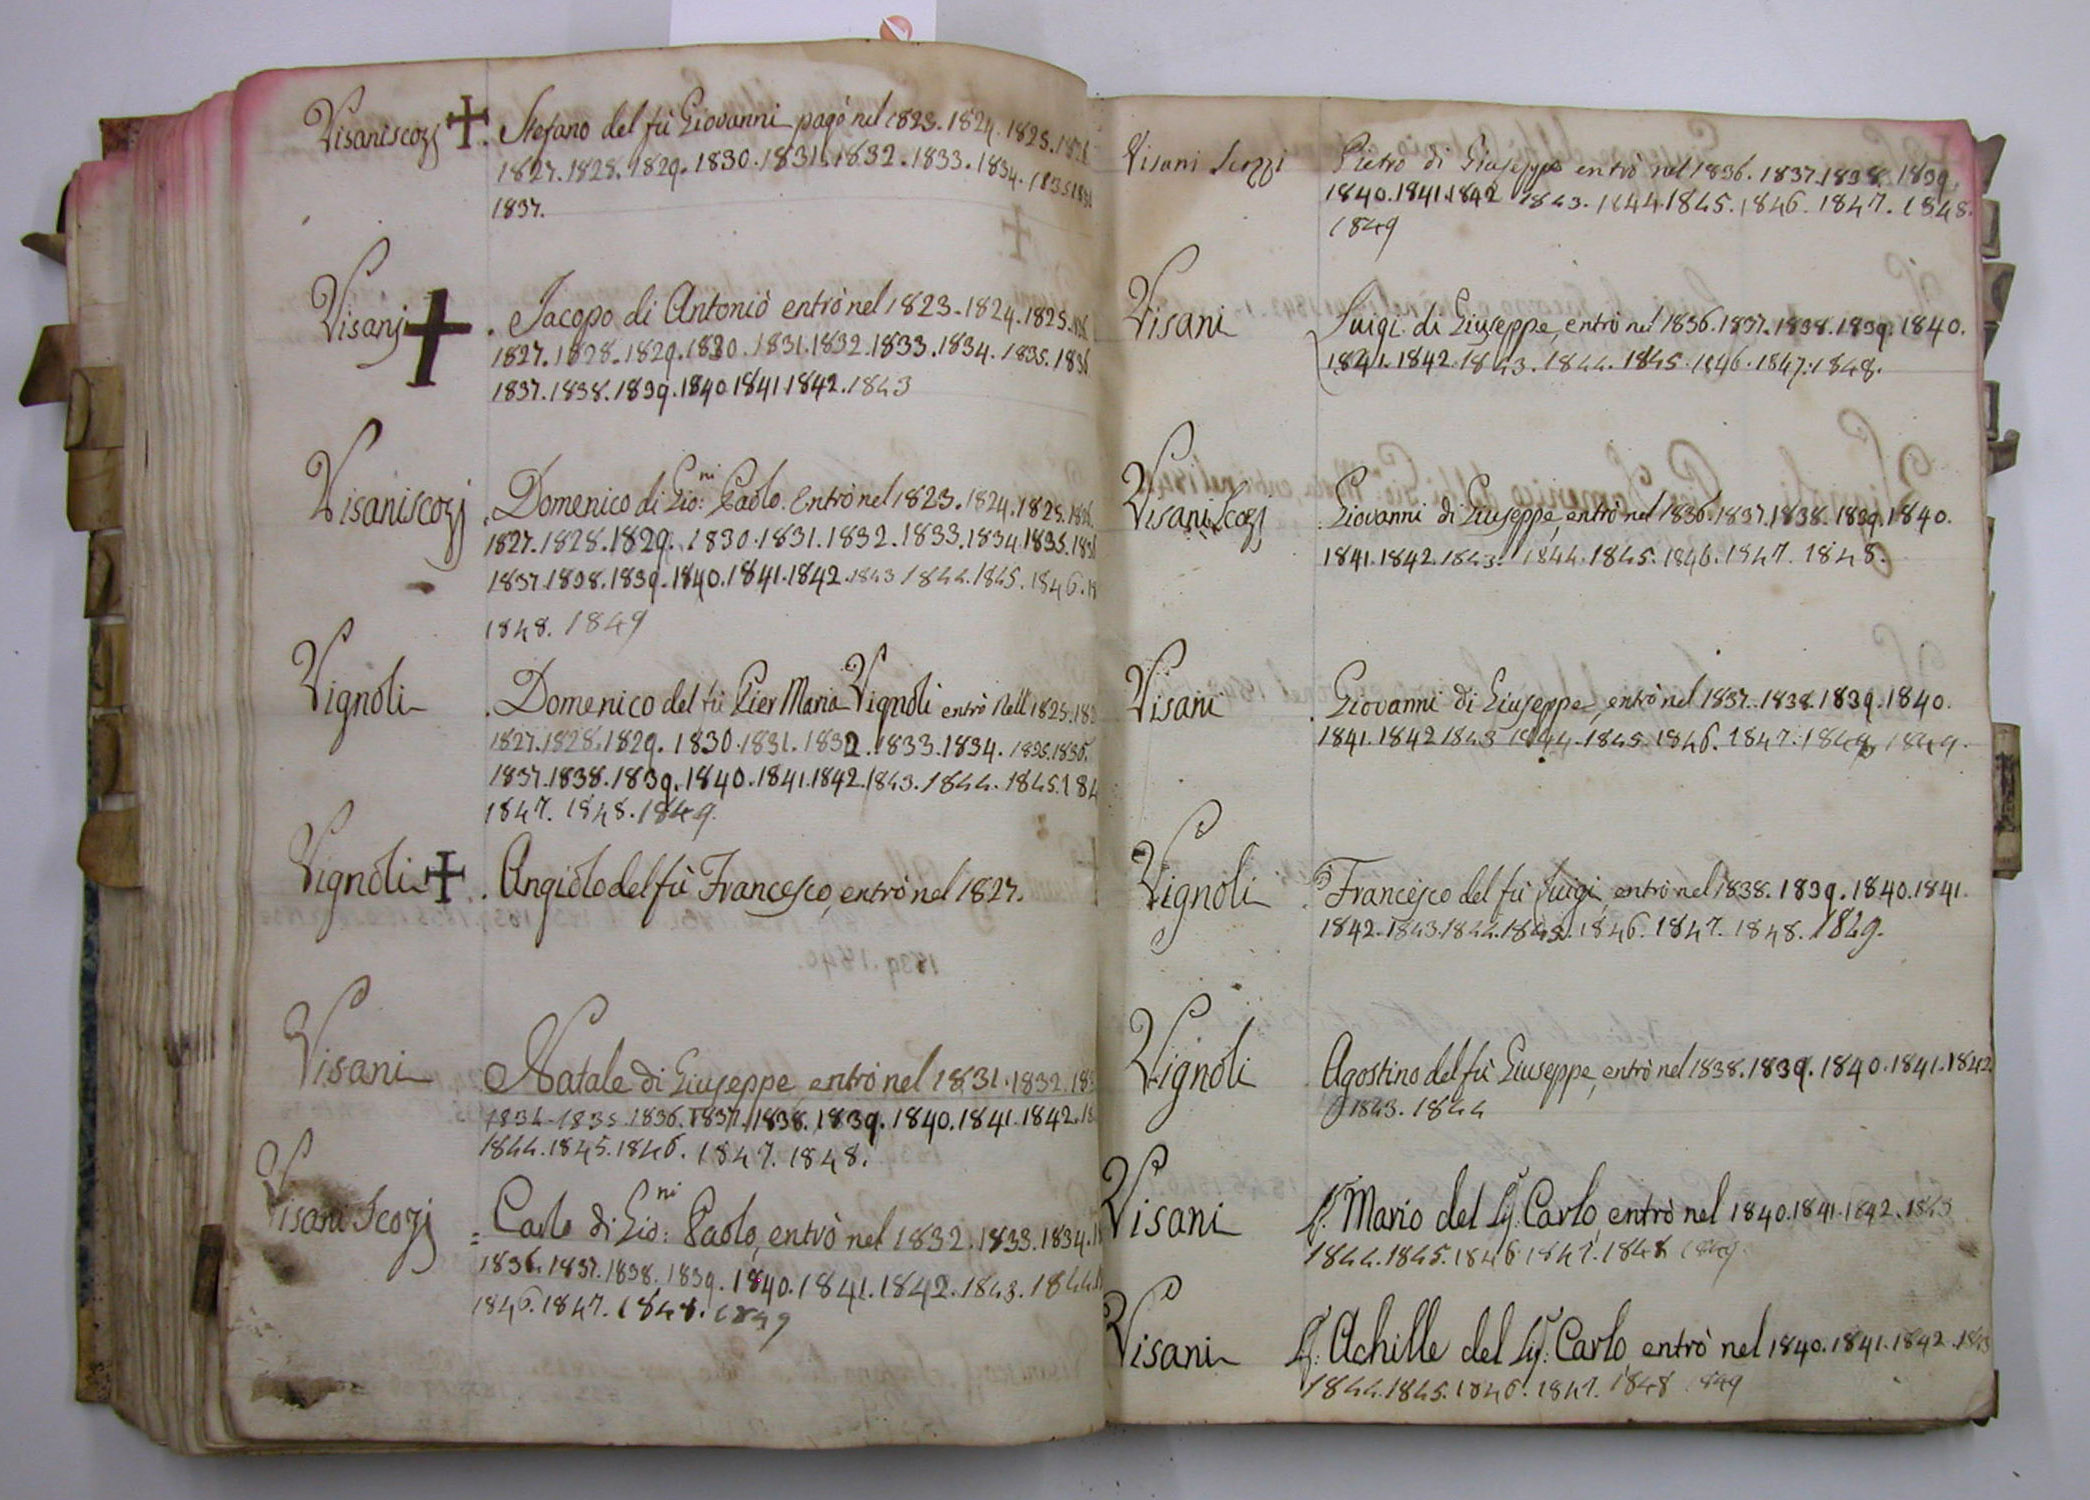 Visaniscozj . Stefano del fù Giovanni pagò nel 1823. 1824. 1825. 1826
1827. 1828. 1829. 1830. 1831. 1832. 1833. 1834. 1835 1836
1837.
Visanj . Jacopo di Antonio entrò nel 1823. 1824. 1825. 1826
1827. 1828. 1829. 1830. 1831. 1832. 1833. 1834. 1835. 1836
1837. 1838. 1839. 1840. 1841. 1842. 1843
Visaniscozj . Domenico di Gio:ni Paolo. Entrò nel 1823. 1824. 1825. 1826.
1827. 1828. 1829. 1830. 1831. 1832. 1833. 1834. 1835. 1836
1837. 1838. 1839. 1840. 1841. 1842. 1843 1844. 1845. 1846. 18
1848. 1849
Vignoli . Domenico del fù Pier Maria Vignoli entrò nell 1825. 182
1827. 1828. 1829. 1830. 1831. 1832. 1833. 1834. 1835. 1836.
1837. 1838. 1839. 1840. 1841. 1842. 1843. 1844. 1845. 184
1847. 1848. 1849.
Vignoli . Angiolo del fù Francesco, entrò nel 1827.
Visani Natale di Giuseppe, entrò nel 1831. 1832. 183
1834. 1835. 1836. 1837. 1838. 1839. 1840. 1841. 1842. 18
1844. 1845. 1846. 1847. 1848.
Visani Scozj = Carlo di Gio:ni Paolo, entrò nel 1832. 1833. 1834. 18
1836. 1837. 1838. 1839. 1840. 1841. 1842. 1843. 1844.
1846. 1847. 1848. 1849
Visani Scozzi Pietro di Giuseppe entrò nel 1836. 1837. 1838. 1839.
1840. 1841. 1842 1843. 1844. 1845. 1846. 1847. 1848.
1849
Visani Luigi di Giuseppe, entrò nel 1836. 1837. 1838. 1839. 1840.
1841. 1842. 1843. 1844. 1845. 1846. 1847. 1848.
Visani Scozj . Giovanni di Giuseppe, entrò nel 1836. 1837. 1838. 1839. 1840.
1841. 1842. 1843. 1844. 1845. 1846. 1847. 1848.
Visani . Giovanni di Giuseppe, entrò nel 1837. 1838. 1839. 1840.
1841. 1842 1843 1844. 1845. 1846. 1847. 1848. 1849.
Vignoli . Francesco del fù Luigi, entrò nel 1838. 1839. 1840. 1841.
1842. 1843. 1844. 1845. 1846. 1847. 1848. 1849.
Vignoli Agostino del fù Giuseppe, entrò nel 1838. 1839. 1840. 1841. 1842
1843. 1844
Visani Mario del Sig: Carlo, entrò nel 1840. 1841. 1842. 1843
1844. 1845. 1846 1847. 1848 1849.
Visani Achille del Sig: Carlo, entrò nel 1840. 1841. 1842. 1843
1844. 1845. 1846. 1847. 1848 1849